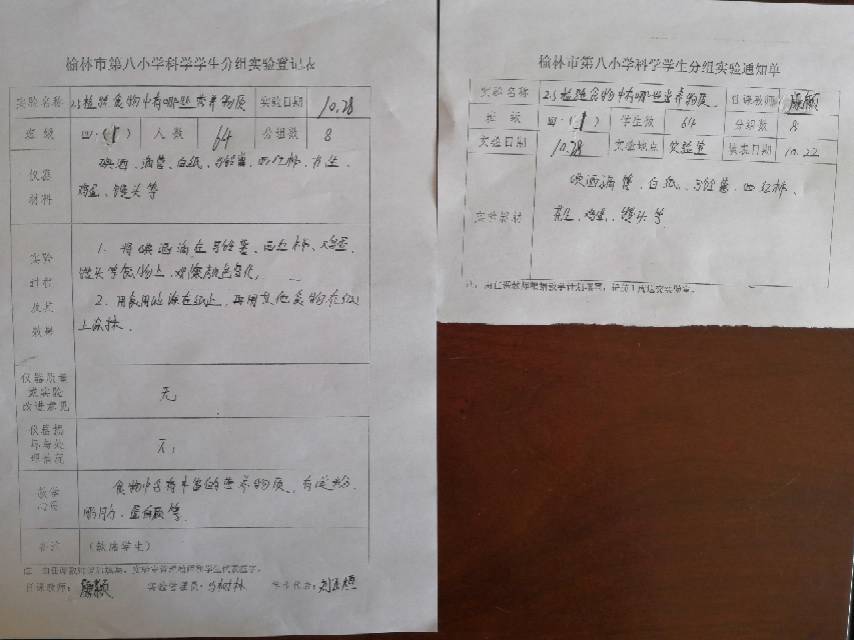 榆林市第八小学科学学生分组实验登记表
实验名称 2.5检验食物中有哪些营养物质 实验日期 10.28
班级 四·(1) 人数 64 分组数 8
仪器材料 碘酒、滴管、白纸、马铃薯、西红柿、花生、
鸡蛋、馒头等
实验 1. 将碘酒滴在马铃薯、西红柿、鸡蛋、
馒头等食物上,观察颜色变化。
2. 用食用油滴在纸上,再用其他食物在纸
上涂抹。
效果
仪器质量
或实验
改进意见
无
仪器损
坏与处
理情况
无
教学
心得
食物中含有丰富的营养物质,有淀粉、
脂肪、蛋白质等
备注 (缺席学生)
任课教师: 实验管理员:马树林 学生代表:
榆林市第八小学科学学生分组实验通知单
实验名称 2.5检验食物中有哪些营养物质 任课教师
班级 四·(1) 学生数 64 分组数 8
实验日期 10.28 实验地点 实验室 填表日期 10.22
实验器材
碘酒滴管、白纸、马铃薯、西红柿、
花生、鸡蛋、馒头等